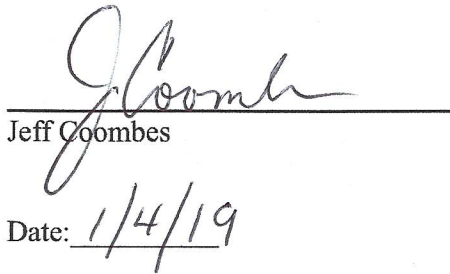 J. Coombes
Jeff Coombes
Date: 1/4/19